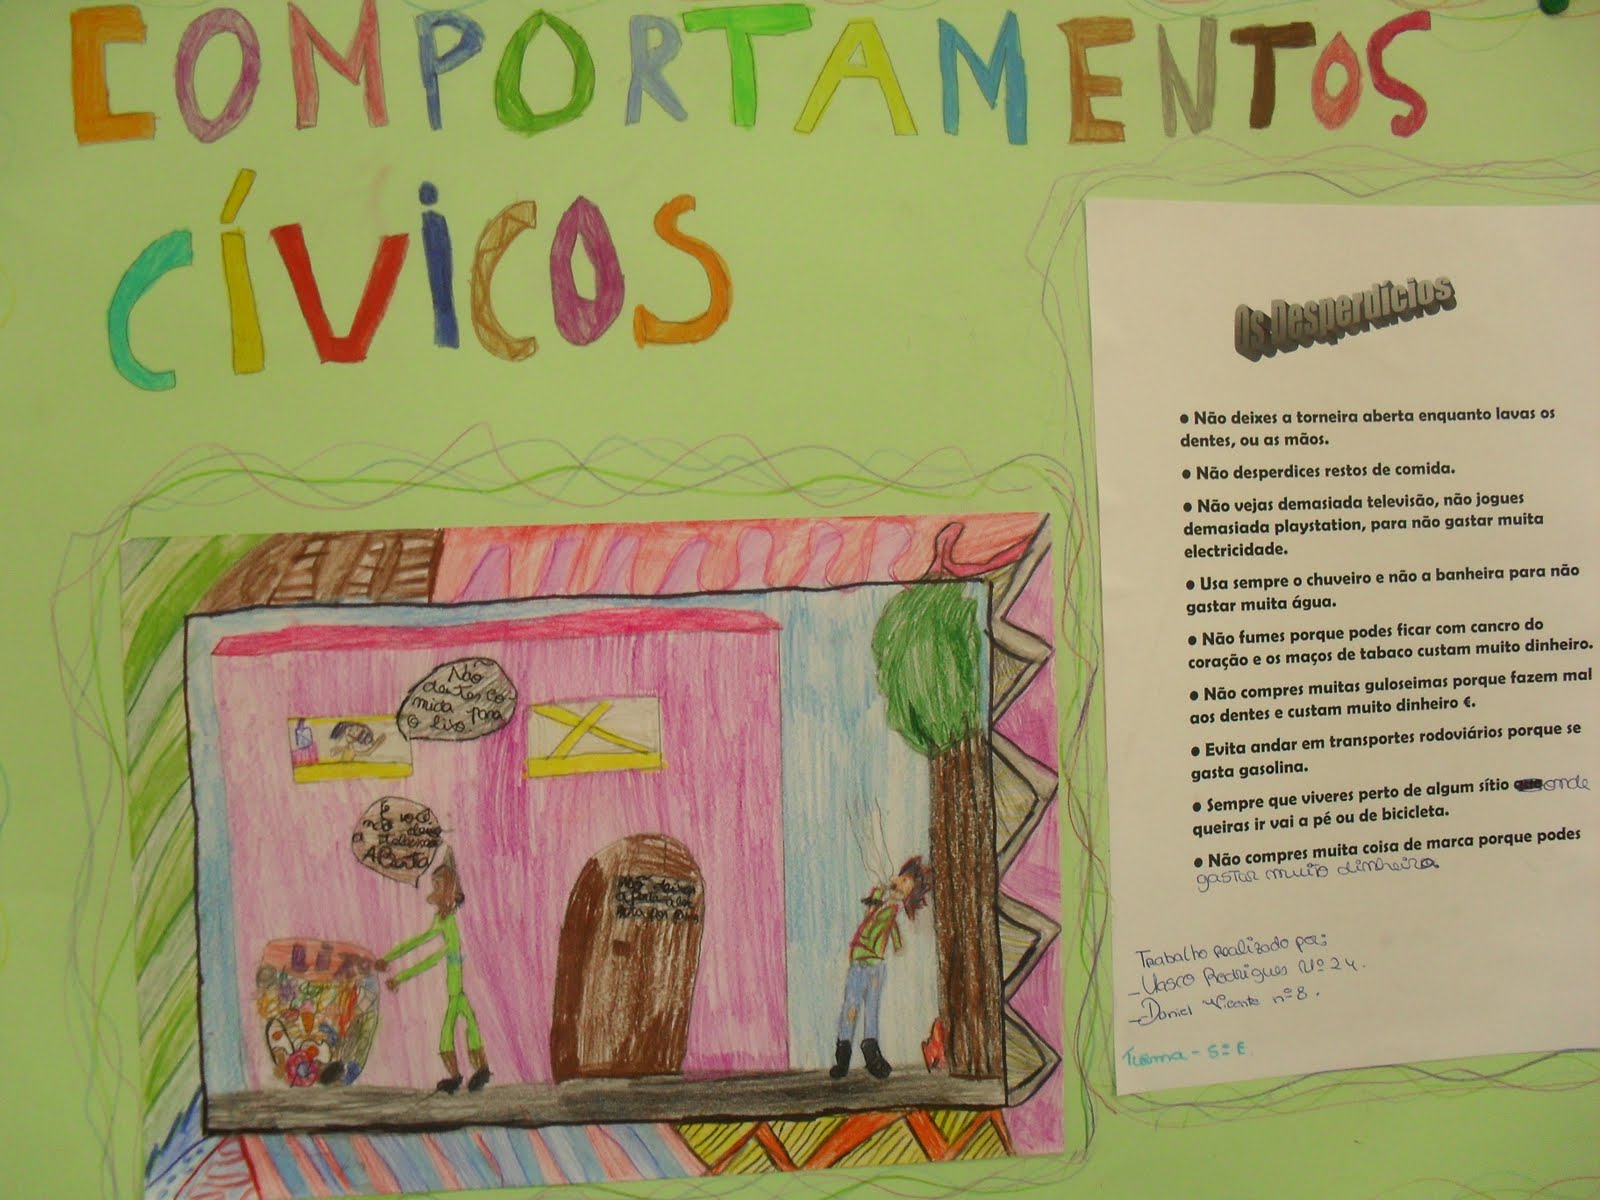 COMPORTAMENTOS
CÍVICOS
Os Desperdícios
● Não deixes a torneira aberta enquanto lavas os
dentes, ou as mãos.
● Não desperdices restos de comida.
● Não vejas demasiada televisão, não jogues
demasiada playstation, para não gastar muita
electricidade.
● Usa sempre o chuveiro e não a banheira para não
gastar muita água.
● Não fumes porque podes ficar com cancro do
coração e os maços de tabaco custam muito dinheiro.
● Não compres muitas guloseimas porque fazem mal
aos dentes e custam muito dinheiro €.
● Evita andar em transportes rodoviários porque se
gasta gasolina.
● Sempre que viveres perto de algum sítio onde
queiras ir vai a pé ou de bicicleta.
● Não compres muita coisa de marca porque podes
gastar muito dinheiro
Trabalho realizado por:
- Vasco Rodrigues Nº 24.
- Daniel Vicente nº 8.
Turma - 5º E
Não
deites co
mida para
o lixo.
E você
não deixe
a torneira
Aberta
não deixes
a porta
LIXO